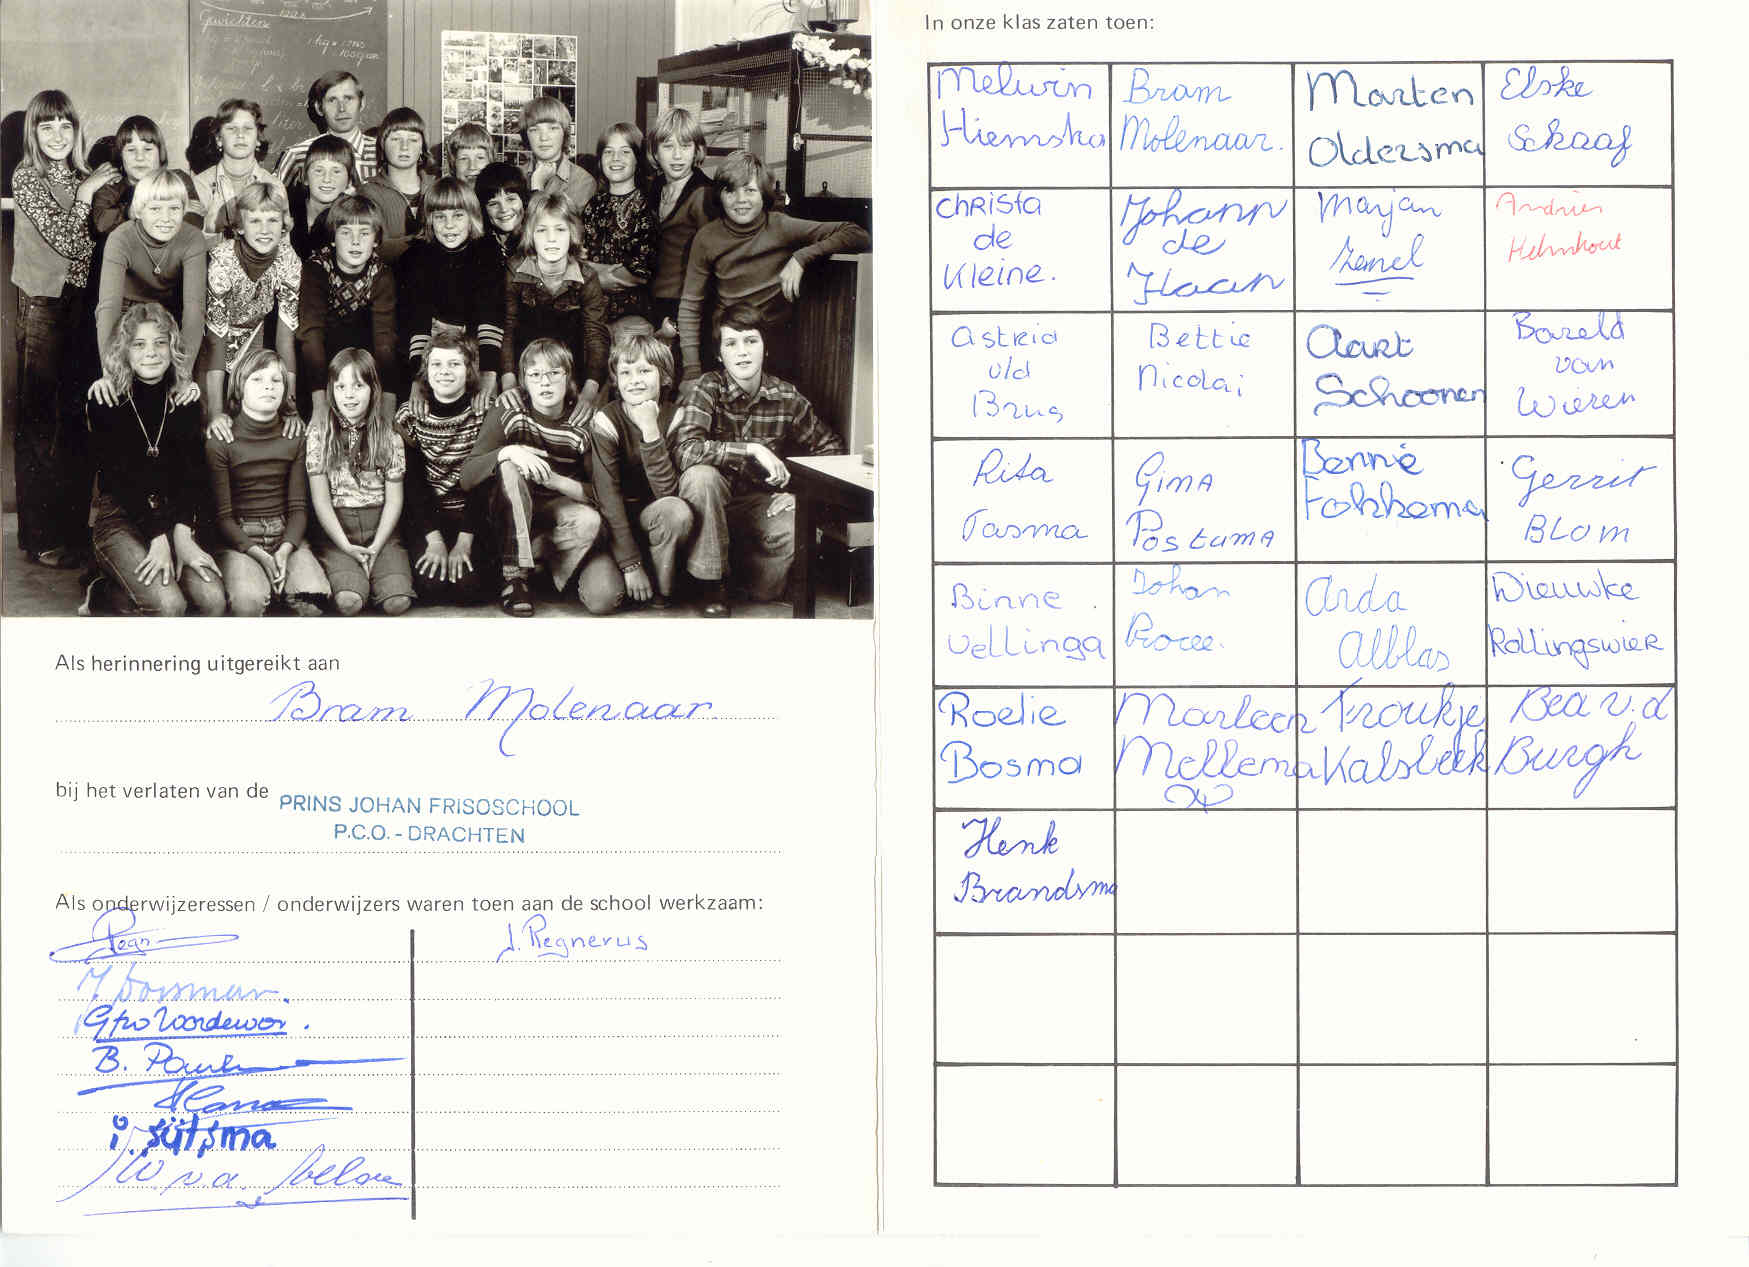 Gewichten
In onze klas zaten toen:
Melwin Hiemstra
Bram Molenaar.
Marten Oldersma
Elske Schaaf
Christa de Kleine.
Johann de Haan
Marjan Zemel
Andries Helmhout
Astrid v/d Brug
Bettie Nicolai
Aart Schoonen
Bareld van Wieren
Rita Tasma
Gima Postuma
Bennie Fokkema
Gerrit Blom
Binne Vellinga
Johan
Arda Alblas
Dieuwke Rollingswier
Roelie Bosma
Marleen Mellema
Froukje Kalsbeek
Bea v.d Burgh
Henk Brandsma
Als herinnering uitgereikt aan
Bram Molenaar
bij het verlaten van de
PRINS JOHAN FRISOSCHOOL
P.C.O. - DRACHTEN
Als onderwijzeressen / onderwijzers waren toen aan de school werkzaam:
J. Regnerus
B.
i. sijtsma
W. v.d.